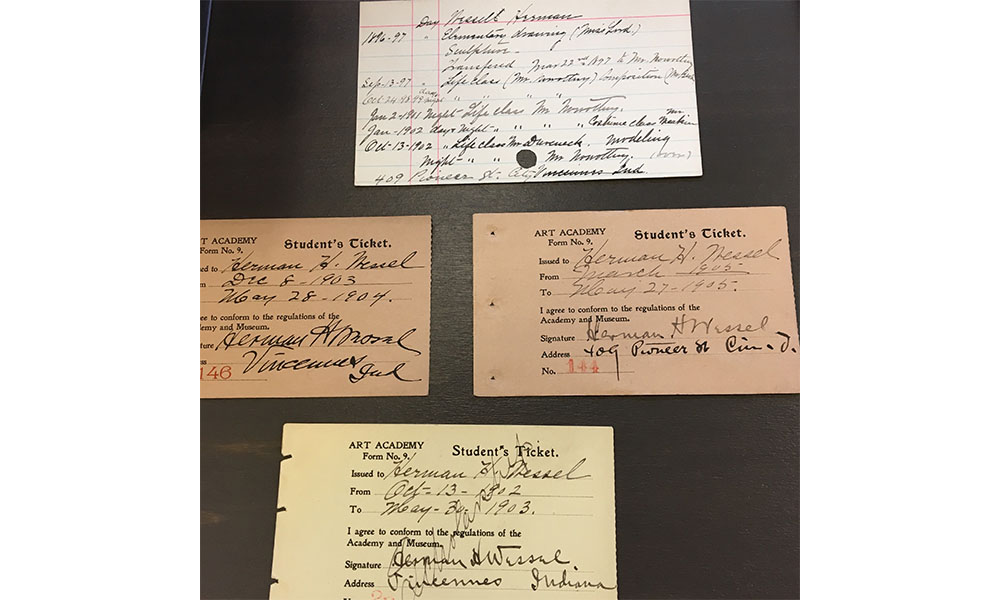 Day Wessell Herman
1896-97 " Elementary drawing (Miss Lord)
Sculpture
Transfered Mar 22nd 1897 to Mr. Nowottny
Sep-13-97 " Life class (Mr. Nowottny) Composition
Oct-24-98-99 days night " " " "
Jan 2-1901 Night Life class Mr Nowottny.
Jan-1902 day & Night " " " " Costume class Mr
Oct-13-1902 " Life class Mr Duveneck. Modeling
Night " " Mr Nowottny.
409 Pioneer St. City Vincennes Ind.
T ACADEMY Student's Ticket.
Form No. 9.
ed to Herman H. Wessel
m Dec 8-1903
May 28-1904.
ee to conform to the regulations of the
ademy and Museum.
ature Herman H Wessel
ess Vincennes Ind
146
ART ACADEMY Student's Ticket.
Form No. 9.
Issued to Herman H. Wessel
From March 1905
To May 27-1905.
I agree to conform to the regulations of the
Academy and Museum.
Signature Herman H Wessel
Address 409 Pioneer St Cin. O.
No. 144
ART ACADEMY Student's Ticket.
Form No. 9.
Issued to Herman H. Wessel
From Oct-13-1902
To May-30-1903.
Scholarship
I agree to conform to the regulations of the
Academy and Museum.
Signature Herman H Wessel.
Address Vincennes Indiana